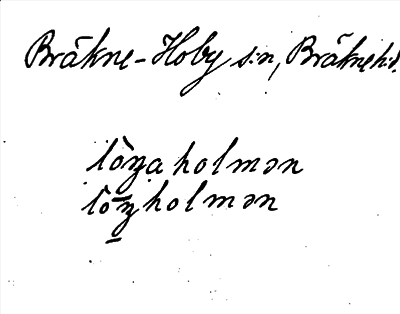 Bräkne-Hoby s:n, Bräkne h:d.
lòŋa holmən
lòŋholmən